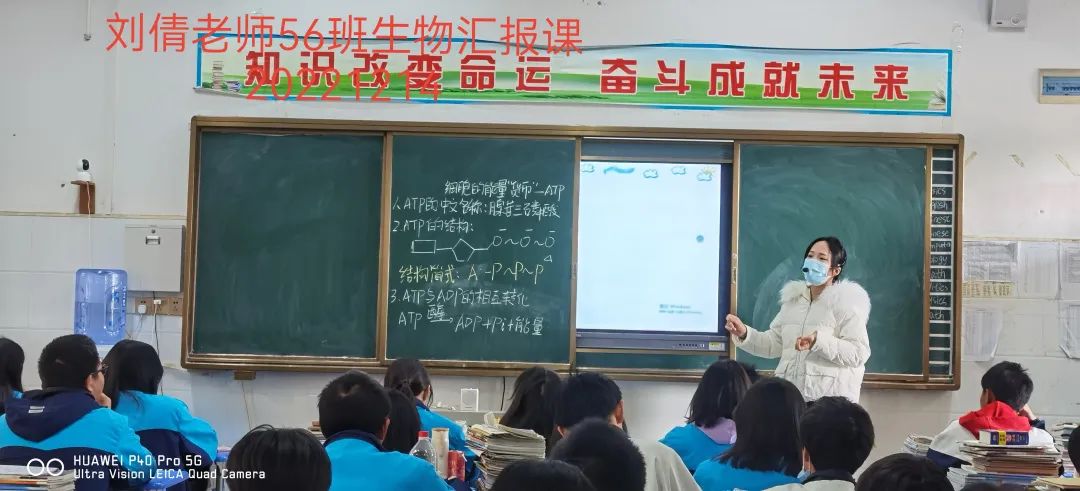 刘倩老师56班生物汇报课
20221214
知识改变命运 奋斗成就未来
细胞的能量"货币"—ATP
1.ATP的中文名称:腺苷三磷酸
2.ATP的结构:
结构简式: A-P~P~P
3.ATP与ADP的相互转化
ATP 酶→ ADP+Pi+能量
HUAWEI P40 Pro 5G
Ultra Vision LEICA Quad Camera